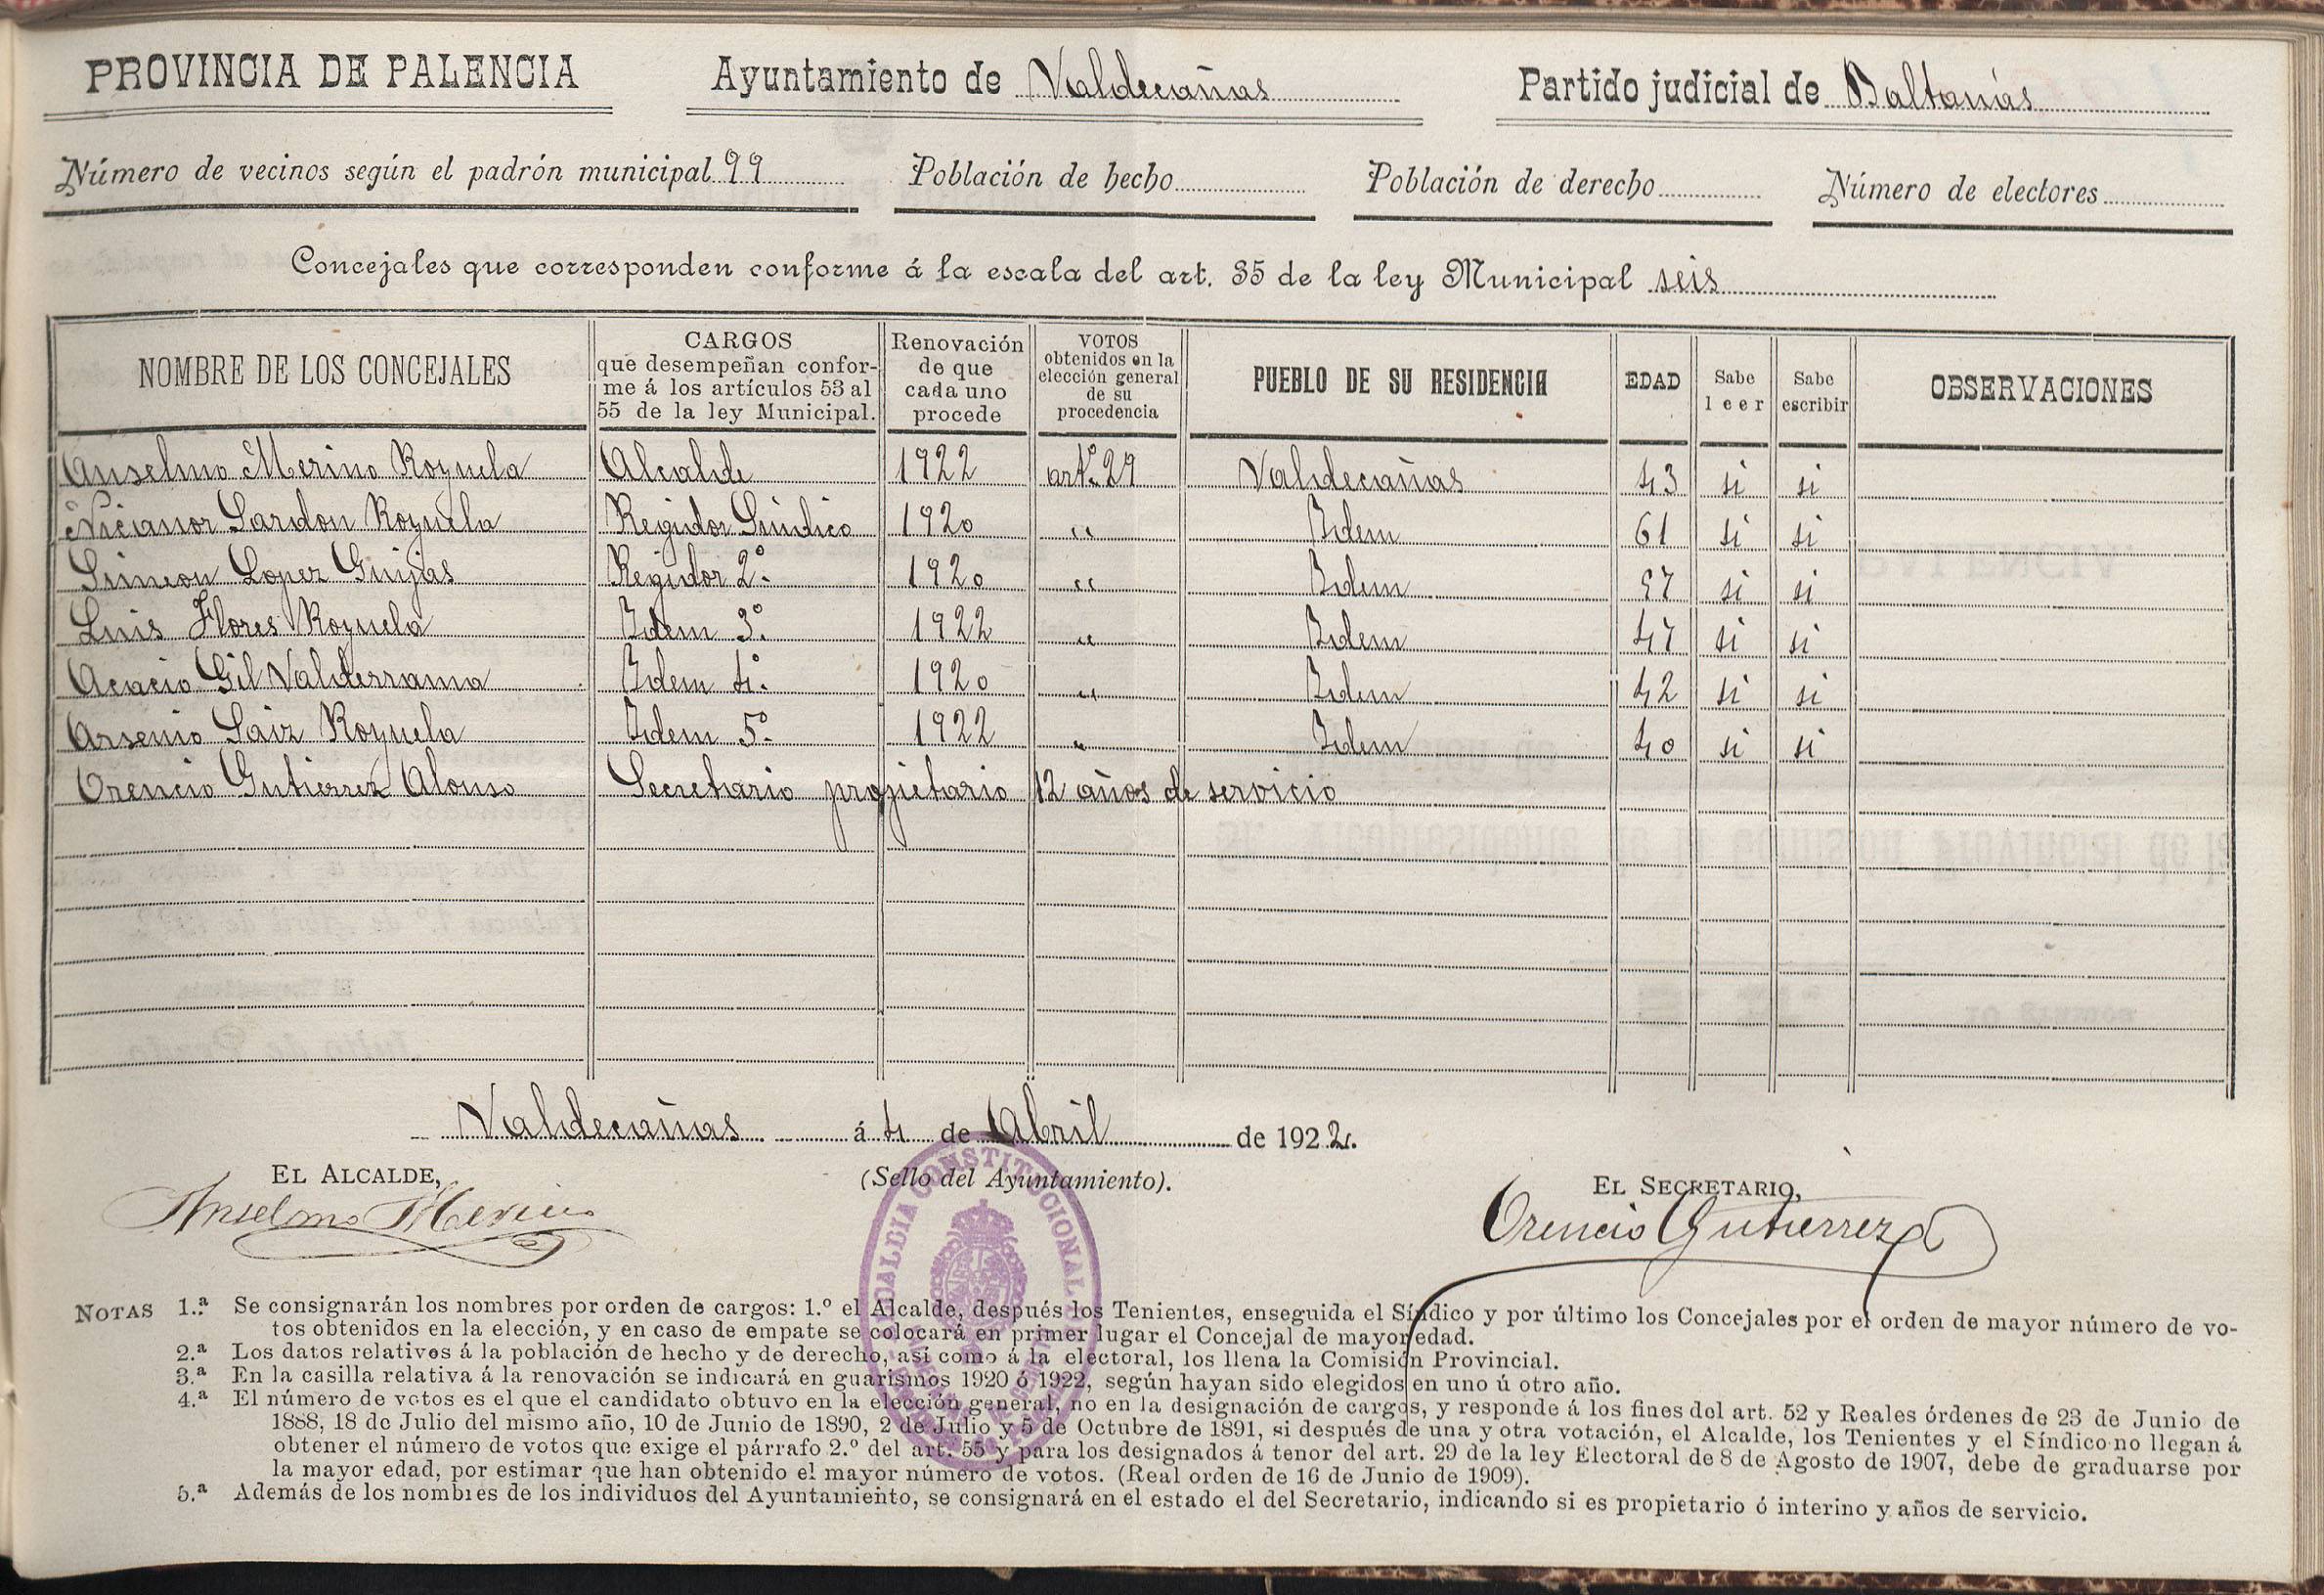 PROVINCIA DE PALENCIA Ayuntamiento de Valdecañas Partido judicial de Baltanás
Número de vecinos según el padrón municipal 99 Población de hecho Población de derecho Número de electores
Concejales que corresponden conforme á la escala del art. 35 de la ley Municipal seis
NOMBRE DE LOS CONCEJALES
CARGOS
que desempeñan confor-
me á los artículos 53 al
55 de la ley Municipal.
Renovación
de que
cada uno
procede
VOTOS
obtenidos en la
elección general
de su
procedencia
PUEBLO DE SU RESIDENCIA
EDAD
Sabe
leer
Sabe
escribir
OBSERVACIONES
Anselmo Merino Royuela Alcalde 1922 artº 29 Valdecañas 43 si si
Nicanor Sardon Royuela Regidor Sindico 1920 " Idem 61 si si
Simeon Lopez Guijas Regidor 2º 1920 " Idem 57 si si
Luis Flores Royuela Idem 3º 1922 " Idem 47 si si
Acacio Gil Valderrama Idem 4º 1920 " Idem 42 si si
Arsenio Saiz Royuela Idem 5º 1922 " Idem 40 si si
Orencio Gutierrez Alonso Secretario propietario 12 años de servicio
Valdecañas á 4 de Abril de 1922.
EL ALCALDE, (Sello del Ayuntamiento). EL SECRETARIO,
Anselmo Merino Orencio Gutierrez
ALCALDIA CONSTITUCIONAL
NOTAS 1.ª Se consignarán los nombres por orden de cargos: 1.º el Alcalde, después los Tenientes, enseguida el Síndico y por último los Concejales por el orden de mayor número de vo-
tos obtenidos en la elección, y en caso de empate se colocará en primer lugar el Concejal de mayor edad.
2.ª Los datos relativos á la población de hecho y de derecho, así como á la electoral, los llena la Comisión Provincial.
3.ª En la casilla relativa á la renovación se indicará en guarismos 1920 ó 1922, según hayan sido elegidos en uno ú otro año.
4.ª El número de votos es el que el candidato obtuvo en la elección general, no en la designación de cargos, y responde á los fines del art. 52 y Reales órdenes de 23 de Junio de
1888, 18 de Julio del mismo año, 10 de Junio de 1890, 2 de Julio y 5 de Octubre de 1891, si después de una y otra votación, el Alcalde, los Tenientes y el Síndico no llegan á
obtener el número de votos que exige el párrafo 2.º del art. 55 y para los designados á tenor del art. 29 de la ley Electoral de 8 de Agosto de 1907, debe de graduarse por
la mayor edad, por estimar que han obtenido el mayor número de votos. (Real orden de 16 de Junio de 1909).
5.ª Además de los nombres de los individuos del Ayuntamiento, se consignará en el estado el del Secretario, indicando si es propietario ó interino y años de servicio.